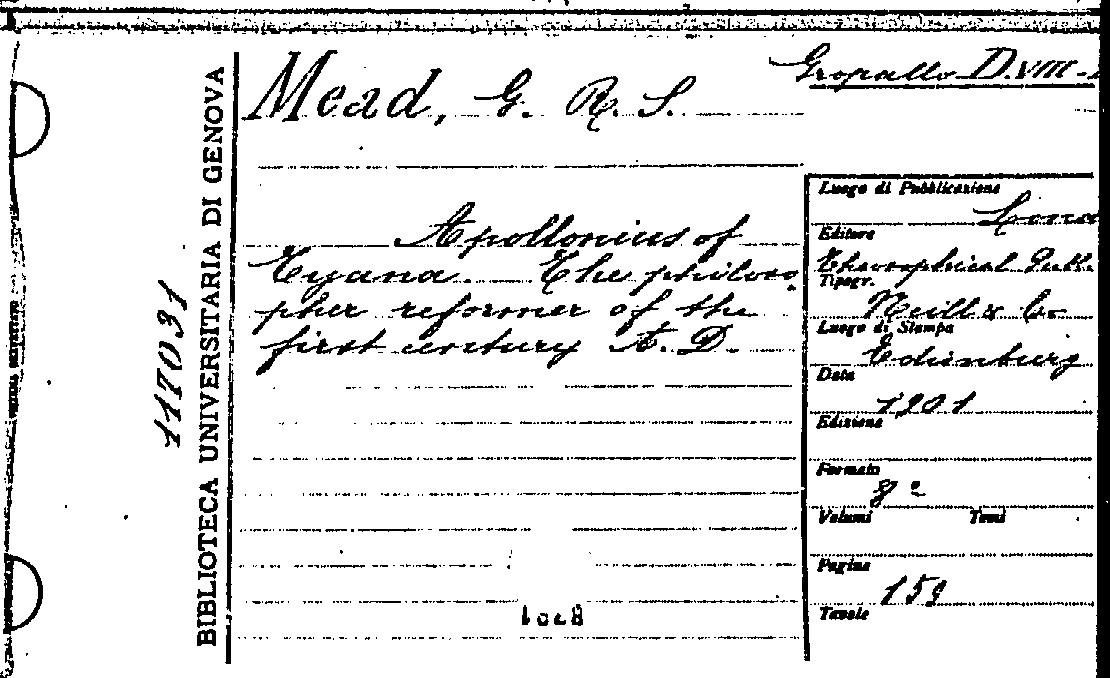 Gropallo D.VIII-
Mead, G. R. S.
Apollonius of
Tyana. The philoso-
pher reformer of the
first century A. D.
Luogo di Pubblicazione
Lond
Editore
Theosophical Publ.
Tipogr.
Neill & Co
Luogo di Stampa
Edinburg
Data
1901
Edizione
Formato
8º
Volumi Tomi
Pagine
159
Tavole
BIBLIOTECA UNIVERSITARIA DI GENOVA
117031